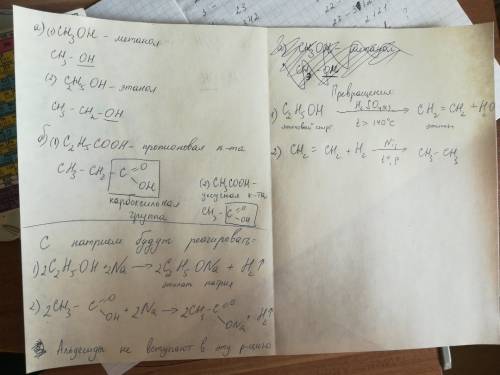 а) (1) CH₃OH – метанол
CH₃ – OH
(2) C₂H₅OH – этанол
CH₃ – CH₂ – OH
б) (1) C₂H₅COOH – пропионовая к-та
CH₃ – CH₂ – C =O
OH
карбоксильная
группа
(2) CH₃COOH –
уксусная к-та
CH₃ – C =O
OH
С натрием будут реагировать:
1) 2C₂H₅OH + 2Na → 2C₂H₅ONa + H₂↑
этилат натрия
2) 2CH₃ – C =O OH + 2Na → 2CH₃ – C =O ONa + H₂↑
Альдегиды не вступают в эту р-цию
CH₃OH – метанол
CH₃ – OH
Превращения:
1) C₂H₅OH H₂SO₄(к) → CH₂ = CH₂ + H₂O
этиловый спирт t > 140°C этилен
2) CH₂ = CH₂ + H₂ Ni → CH₃ – CH₃
t°, p